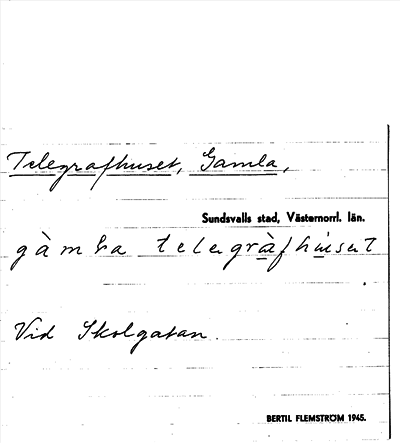 Telegrafhuset, Gamla,
Sundsvalls stad, Västernorrl. län.
gàmla telegràfhuset
Vid Skolgatan.
BERTIL FLEMSTRÖM 1945.